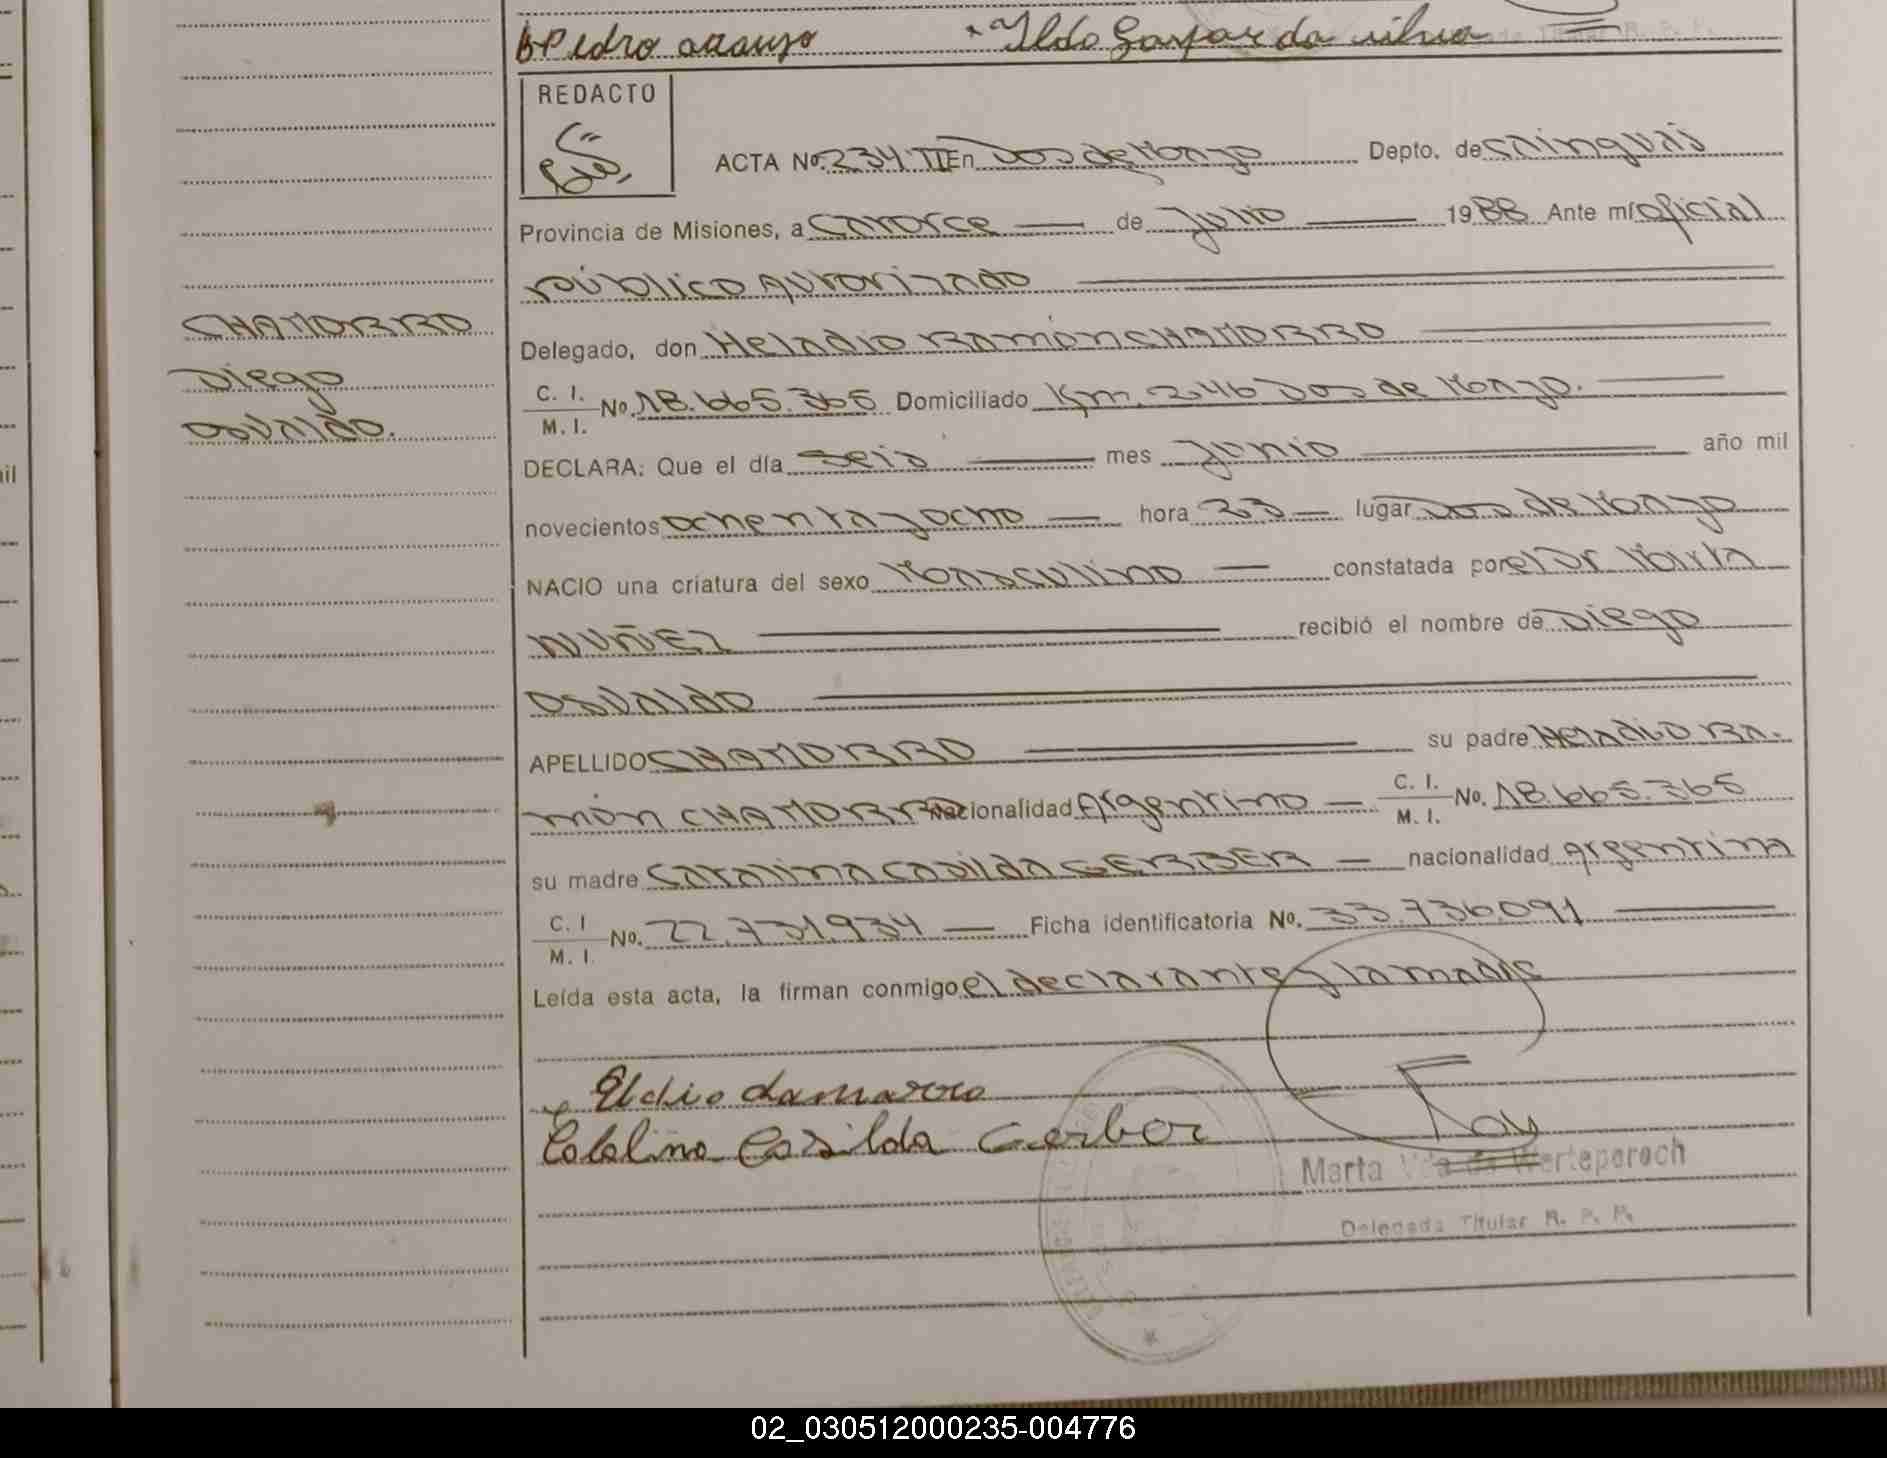 Pedro araujo Ildo Gaspar da silva
REDACTO
ACTA No. 234 II En Dos de Mayo Depto. de Cainguás
Provincia de Misiones, a Catorce de Julio 1988 Ante mí oficial
público autorizado
CHAMORRO
Delegado, don Heladio Ramón CHAMORRO
Diego
C. I.
M. I. No. 18.665.365 Domiciliado Km. 246 Dos de Mayo.
Osvaldo.
DECLARA: Que el día seis mes Junio año mil
novecientos ochenta y ocho hora 23 lugar Dos de Mayo
NACIO una criatura del sexo Masculino constatada por el Dr Mirta
NUÑEZ recibió el nombre de Diego
Osvaldo
APELLIDO CHAMORRO su padre Heladio Ra.
món CHAMORRO nacionalidad Argentino C. I.
M. I. No. 18.665.365
su madre Catalina Casilda GERBER nacionalidad Argentina
C. I
M. I. No. 22.731.934 Ficha identificatoria No. 33.736.091
Leída esta acta, la firman conmigo el declarante y la madre
Eldio
Catalina Casilda Gerber
Marta Vda de Werteperoch
Delegada Titular R. P. P.
02_030512000235-004776